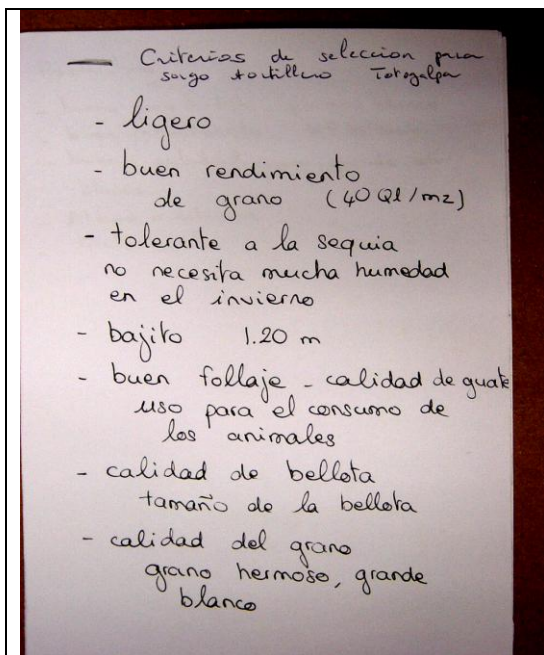 — Criterios de seleccion para
sorgo tortillero Totogalpa
- ligero
- buen rendimiento
de grano (40 Ql/mz)
- tolerante a la sequia
no necesita mucha humedad
en el invierno
- bajito 1.20 m
- buen follaje - calidad de guate
uso para el consumo de
los animales
- calidad de bellota
tamaño de la bellota
- calidad del grano
grano hermoso, grande
blanco